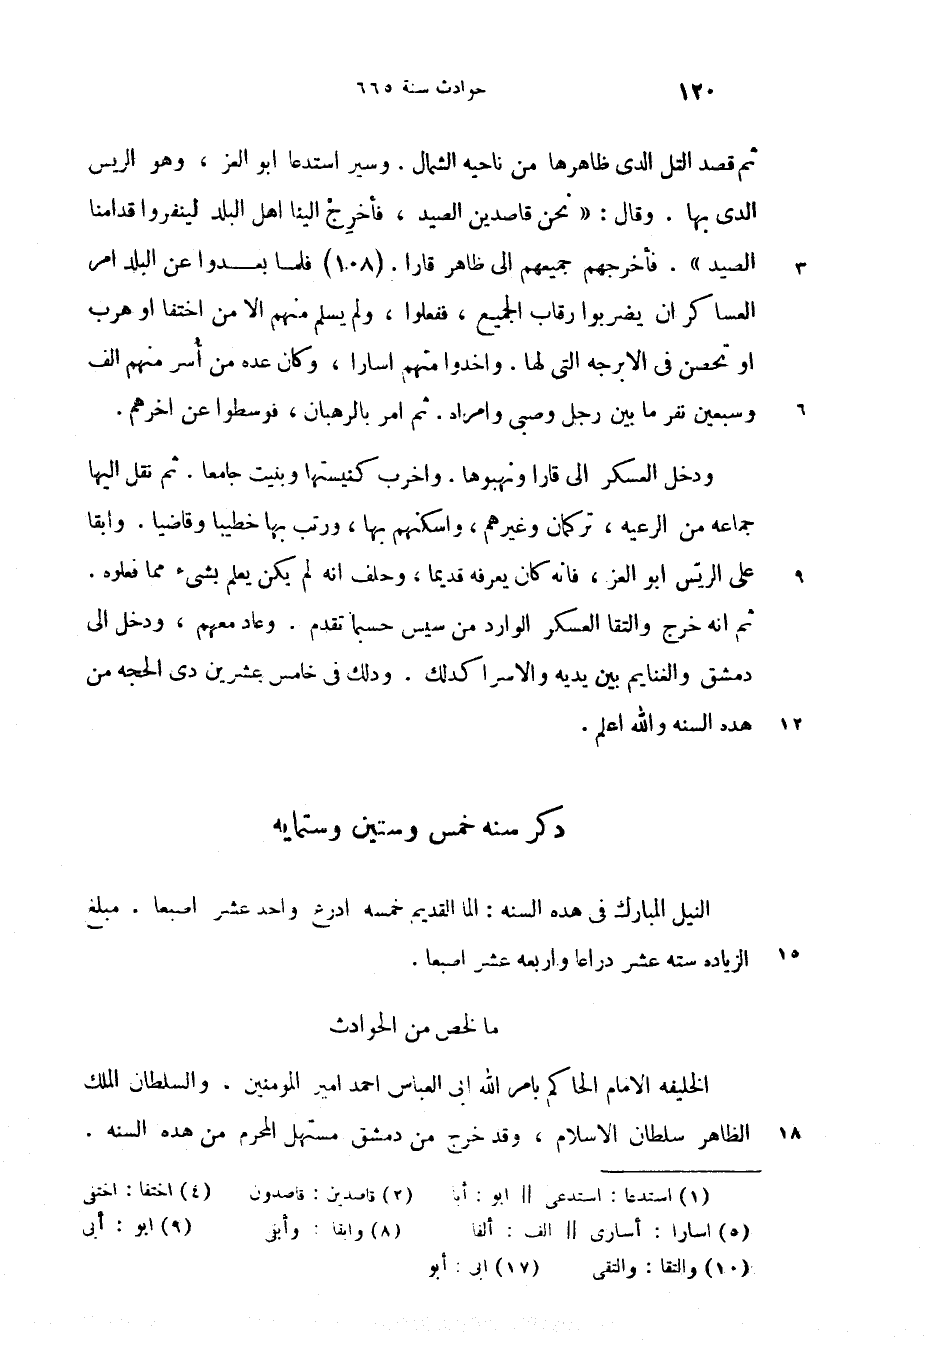 ١٢٠ حوادث سنة ٦٦٥
ثم قصد التل الدى ظاهرها من ناحيه الشمال . وسير استدعا ابو العز ، وهو الريس
الدى بها . وقال : « نحن قاصدين الصيد ، فأخرِجْ الينا اهل البلد لينفروا قدامنا
٣ الصيد » . فأخرجهم جميعهم الى ظاهر قارا . (١٠٨) فلما بعدوا عن البلد امر
العساكر ان يضربوا رقاب الجميع ، ففعلوا ، ولم يسلم منهم الا من اختفا او هرب
او تحصن فى الابرجه التى لها . واخدوا منهم اسارا ، وكان عده من أُسر منهم الف
٦ وسبعين نفر ما بين رجل وصبى وامراه . ثم امر بالرهبان ، فوسطوا عن اخرهم .
ودخل العسكر الى قارا ونهبوها . واخرب كنيستها وبنيت جامعا . ثم نقل اليها
جماعه من الرعيه ، تركمان وغيرهم ، واسكنهم بها ، ورتب بها خطيبا وقاضيا . وابقا
٩ على الريّس ابو العز ، فانه كان يعرفه قديما ، وحلف انه لم يكن يعلم بشىء مما فعلوه .
ثم انه خرج والتقا العسكر الوارد من سيس حسبما تقدم . وعاد معهم ، ودخل الى
دمشق والغنايم بين يديه والاسرا كدلك . ودلك فى خامس عشرين دى الحجه من
١٢ هده السنه والله اعلم .
دكر سنه خمس وستين وستمايه
النيل المبارك فى هده السنه : الما القديم خمسه ادرع واحد عشر اصبعا . مبلغ
١٥ الزياده سته عشر دراعا واربعه عشر اصبعا .
ما لخص من الحوادث
الخليفه الامام الحاكم بامر الله ابى العباس احمد امير المومنين . والسلطان الملك
١٨ الظاهر سلطان الاسلام ، وقد خرج من دمشق مستهل المحرم من هده السنه .
(١) استدعا : استدعى || ابو : أبا (٢) قاصدين : قاصدون (٤) اختفا : اختفى
(٥) اسارا : أسارى || الف : ألفا (٨) وابقا : وأبقى (٩) ابو : أبى
(١٠) والتقا : والتقى (١٧) ابى : أبو